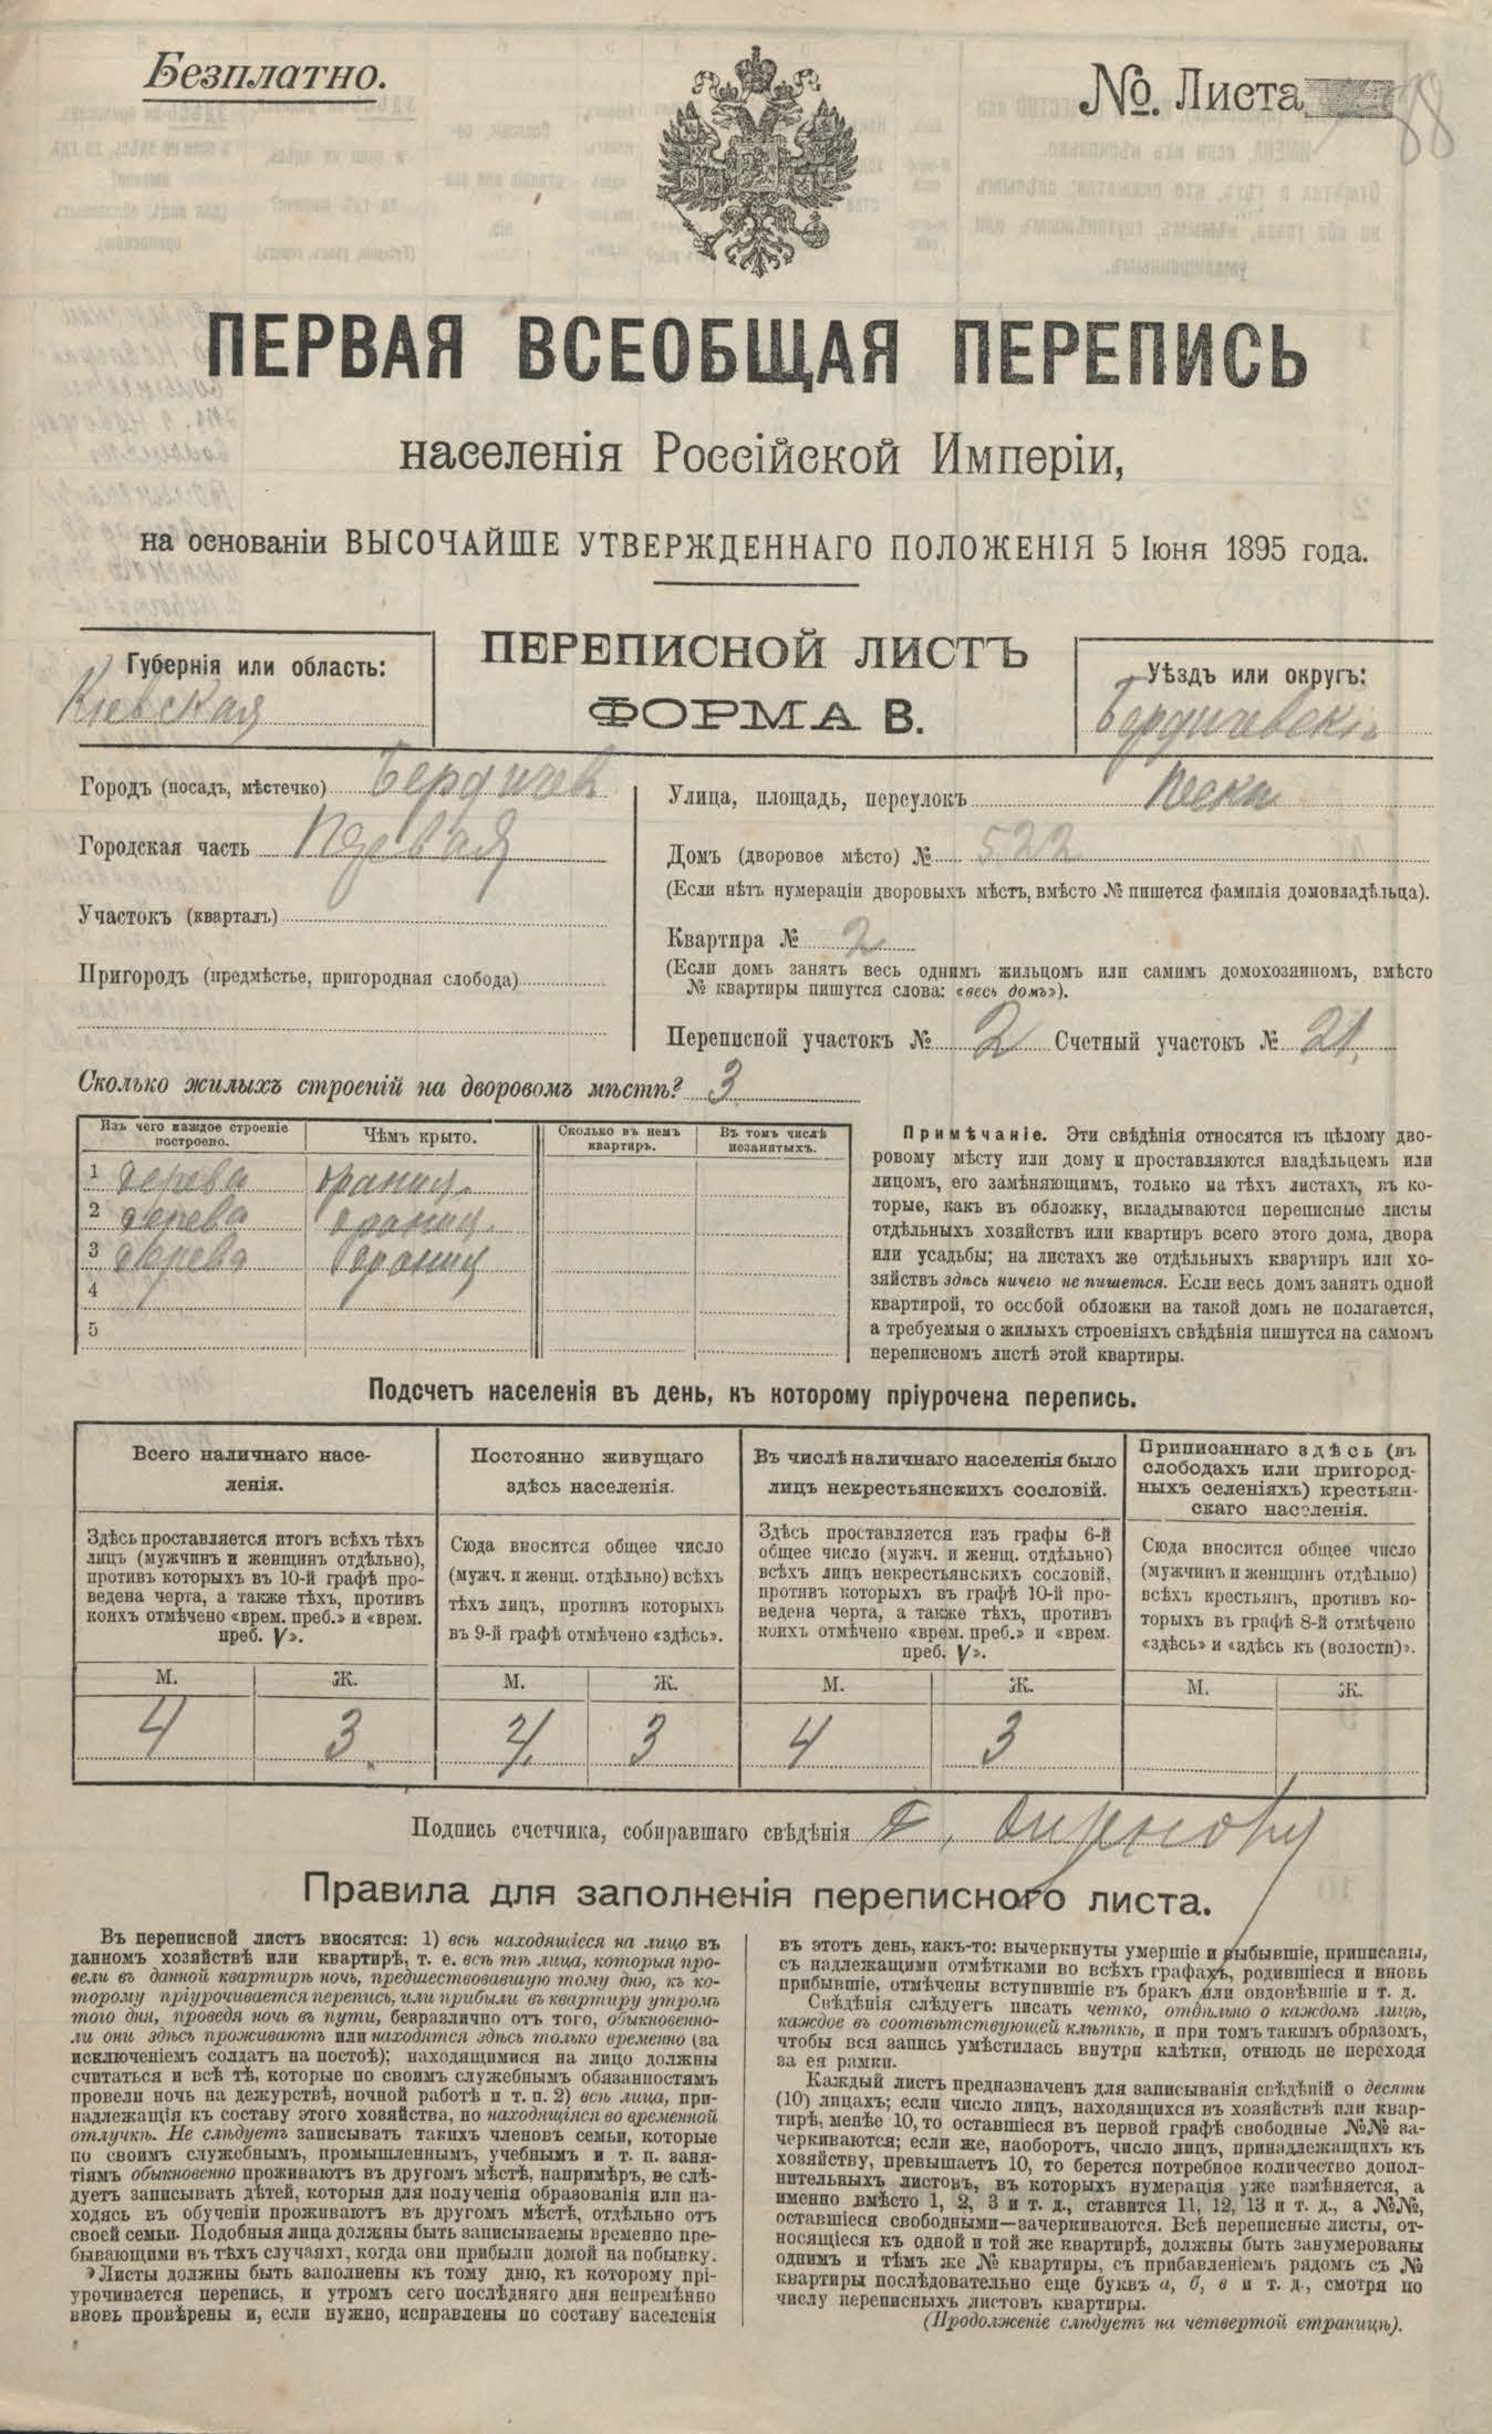 Безплатно.
№. Листа 88
ПЕРВАЯ ВСЕОБЩАЯ ПЕРЕПИСЬ
населенія Россійской Имперіи,
на основаніи ВЫСОЧАЙШЕ УТВЕРЖДЕННАГО ПОЛОЖЕНІЯ 5 Іюня 1895 года.
ПЕРЕПИСНОЙ ЛИСТЪ
ФОРМА В.
Губернія или область:
Киевская
Уѣздъ или округъ:
Бердичевскій
Городъ (посадъ, мѣстечко) Бердичев
Городская часть Первая
Участокъ (кварталъ)
Пригородъ (предмѣстье, пригородная слобода)
Улица, площадь, переулокъ Пески
Домъ (дворовое мѣсто) № 522
(Если нѣтъ нумераціи дворовыхъ мѣстъ, вмѣсто № пишется фамилія домовладѣльца).
Квартира № 2
(Если домъ занятъ весь однимъ жильцомъ или самимъ домохозяиномъ, вмѣсто
№ квартиры пишутся слова: «весь домъ»).
Переписной участокъ № 2 Счетный участокъ № 21
Сколько жилыхъ строеній на дворовомъ мѣстѣ? 3
Изъ чего каждое строеніе
построено.
Чѣмъ крыто.
Сколько въ немъ
квартиръ.
Въ томъ числѣ
незанятыхъ.
1 дерева
2 дерева
3 дерева
4
5
Примѣчаніе. Эти свѣдѣнія относятся къ цѣлому дво-
ровому мѣсту или дому и проставляются владѣльцемъ или
лицомъ, его замѣняющимъ, только на тѣхъ листахъ, въ ко-
торые, какъ въ обложку, вкладываются переписные листы
отдѣльныхъ хозяйствъ или квартиръ всего этого дома, двора
или усадьбы; на листахъ же отдѣльныхъ квартиръ или хо-
зяйствъ здѣсь ничего не пишется. Если весь домъ занятъ одной
квартирой, то особой обложки на такой домъ не полагается,
а требуемыя о жилыхъ строеніяхъ свѣдѣнія пишутся на самомъ
переписномъ листѣ этой квартиры.
Подсчетъ населенія въ день, къ которому пріурочена перепись.
Всего наличнаго насе-
ленія.
Здѣсь проставляется итогъ всѣхъ тѣхъ
лицъ (мужчинъ и женщинъ отдѣльно),
противъ которыхъ въ 10-й графѣ про-
ведена черта, а также тѣхъ, противъ
коихъ отмѣчено «врем. преб.» и «врем.
преб. V».
М. Ж.
4 3
Постоянно живущаго
здѣсь населенія.
Сюда вносится общее число
(мужч. и женщ. отдѣльно) всѣхъ
тѣхъ лицъ, противъ которыхъ
въ 9-й графѣ отмѣчено «здѣсь».
М. Ж.
4 3
Въ числѣ наличнаго населенія было
лицъ некрестьянскихъ сословій.
Здѣсь проставляется изъ графы 6-й
общее число (мужч. и женщ. отдѣльно)
всѣхъ лицъ некрестьянскихъ сословій,
противъ которыхъ въ графѣ 10-й про-
ведена черта, а также тѣхъ, противъ
коихъ отмѣчено «врем. преб.» и «врем.
преб. V».
М. Ж.
4 3
Приписаннаго здѣсь (въ
слободахъ или пригород-
ныхъ селеніяхъ) крестьян-
скаго населенія.
Сюда вносится общее число
(мужчинъ и женщинъ отдѣльно)
всѣхъ крестьянъ, противъ ко-
торыхъ въ графѣ 8-й отмѣчено
«здѣсь» и «здѣсь къ (волости)».
М. Ж.
Подпись счетчика, собиравшаго свѣдѣнія
Правила для заполненія переписного листа.
Въ переписной листъ вносятся: 1) всѣ находящіеся на лицо въ
данномъ хозяйствѣ или квартирѣ, т. е. всѣ тѣ лица, которыя про-
вели въ данной квартирѣ ночь, предшествовавшую тому дню, къ ко-
торому пріурочивается перепись, или прибыли въ квартиру утромъ
того дня, проведя ночь въ пути, безразлично отъ того, обыкновенно-
ли они здѣсь проживаютъ или находятся здѣсь только временно (за
исключеніемъ солдатъ на постоѣ); находящимися на лицо должны
считаться и всѣ тѣ, которые по своимъ служебнымъ обязанностямъ
провели ночь на дежурствѣ, ночной работѣ и т. п. 2) всѣ лица, при-
надлежащія къ составу этого хозяйства, но находящіяся во временной
отлучкѣ. Не слѣдуетъ записывать такихъ членовъ семьи, которые
по своимъ служебнымъ, промышленнымъ, учебнымъ и т. п. заня-
тіямъ обыкновенно проживаютъ въ другомъ мѣстѣ, напримѣръ, не слѣ-
дуетъ записывать дѣтей, которыя для полученія образованія или на-
ходясь въ обученіи проживаютъ въ другомъ мѣстѣ, отдѣльно отъ
своей семьи. Подобныя лица должны быть записываемы временно пре-
бывающими въ тѣхъ случаяхъ, когда они прибыли домой на побывку.
Листы должны быть заполнены къ тому дню, къ которому прі-
урочивается перепись, и утромъ сего послѣдняго дня непремѣнно
вновь провѣрены и, если нужно, исправлены по составу населенія
въ этотъ день, какъ-то: вычеркнуты умершіе и выбывшіе, приписаны,
съ надлежащими отмѣтками во всѣхъ графахъ, родившіеся и вновь
прибывшіе, отмѣчены вступившіе въ бракъ или овдовѣвшіе и т. д.
Свѣдѣнія слѣдуетъ писать четко, отдѣльно о каждомъ лицѣ,
каждое въ соотвѣтствующей клѣткѣ, и при томъ такимъ образомъ,
чтобы вся запись умѣстилась внутри клѣтки, отнюдь не переходя
за ея рамки.
Каждый листъ предназначенъ для записыванія свѣдѣній о десяти
(10) лицахъ; если число лицъ, находящихся въ хозяйствѣ или квар-
тирѣ, менѣе 10, то оставшіеся въ первой графѣ свободные №№ за-
черкиваются; если же, наоборотъ, число лицъ, принадлежащихъ къ
хозяйству, превышаетъ 10, то берется потребное количество допол-
нительныхъ листовъ, въ которыхъ нумерація уже измѣняется, а
именно вмѣсто 1, 2, 3 и т. д., ставится 11, 12, 13 и т. д., а №№,
оставшіеся свободными—зачеркиваются. Всѣ переписные листы, от-
носящіеся къ одной и той же квартирѣ, должны быть занумерованы
однимъ и тѣмъ же № квартиры, съ прибавленіемъ рядомъ съ №
квартиры послѣдовательно еще буквъ а, б, в и т. д., смотря по
числу переписныхъ листовъ квартиры.
(Продолженіе слѣдуетъ на четвертой страницѣ).